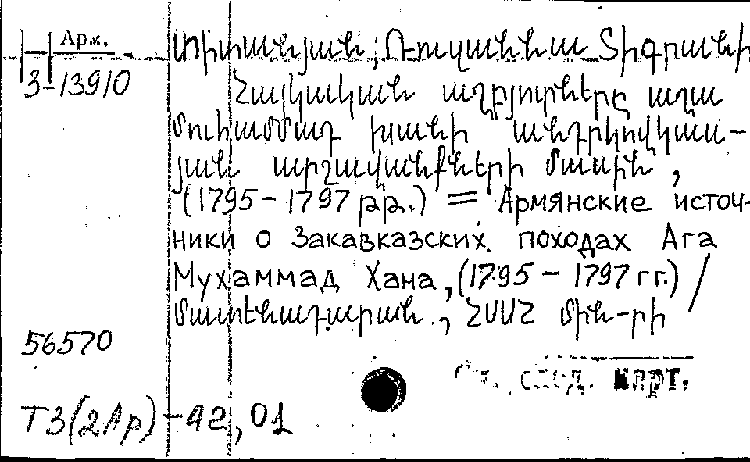 Арж.
3-13910
Տիտանյան, Ռուզաննա Տիգրանի
Հայկական աղբյուրները աղա
Մուհամմադ խանի անդրկովկաս-
յան արշավանքների մասին,
(1795-1797 թթ.) = Армянские источ-
ники о Закавказских походах Ага
Мухаммад Хана, (1795-1797 гг.) /
Մատենադարան., ՀՍՍՀ մին-րի
56570
След. карт.
Т3(2Ар)-42,01